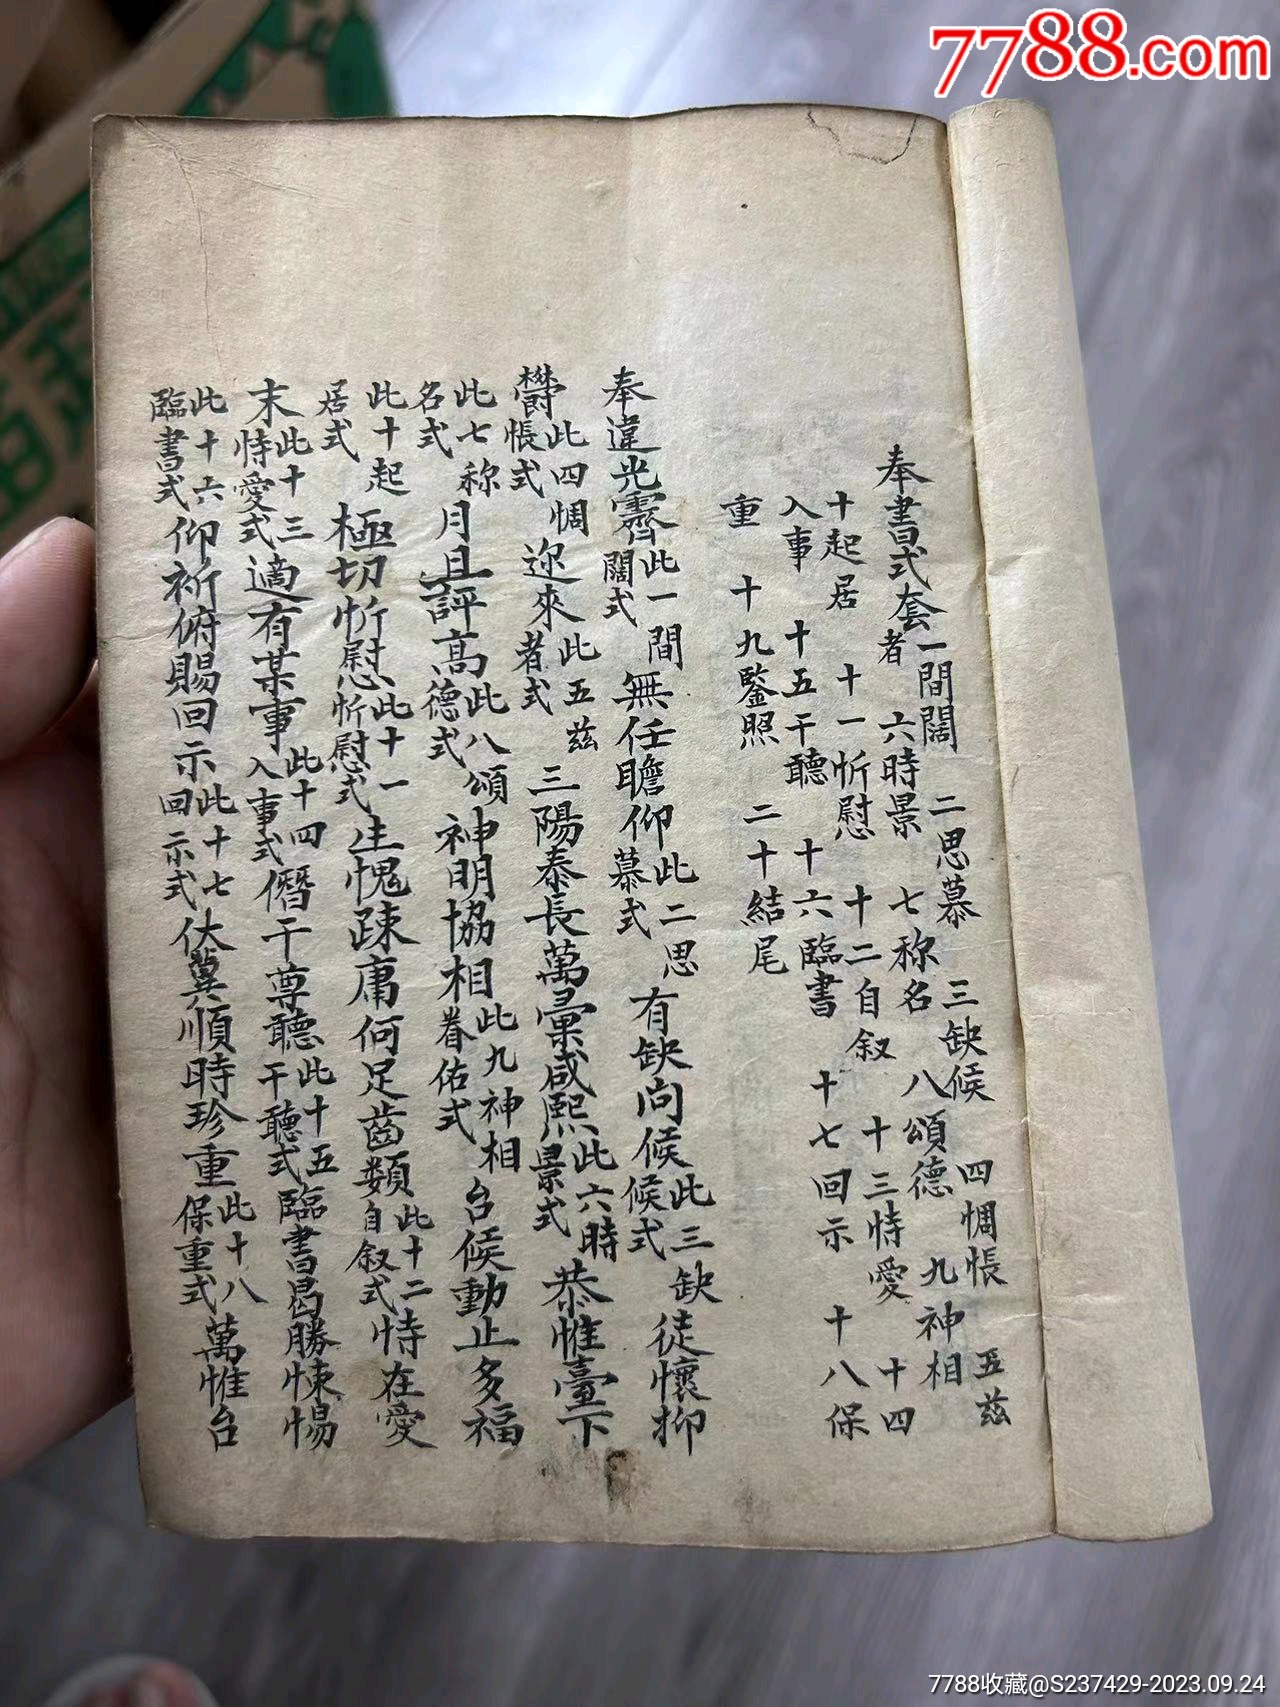 7788.com
奉書式套一間闊 二思慕 三缺候 四惆悵 五兹
者 六時景 七称名 八頌德 九神相
十起居 十一忻慰 十二自叙 十三恃愛 十四
入事 十五干聽 十六臨書 十七回示 十八保
重 十九鑒照 二十結尾
奉違光霽此一間闊式無任瞻仰此二思慕式有缺向候此三缺候式徒懷抑
鬱此四惆悵式迩來此五兹者式三陽泰長萬彙咸熙此六時景式恭惟臺下
此七称名式月旦評高此八頌德式神明協相此九神相眷佑式台候動止多福
此十起居式極切忻慰此十一忻慰式生愧疎庸何足齒類此十二自叙式恃在愛
末此十三恃愛式適有某事此十四入事式僭干尊聽此十五干聽式臨書曷勝悚惕
此十六臨書式仰祈俯賜回示此十七回示式伏冀順時珍重此十八保重式萬惟台
7788收藏@S237429-2023.09.24